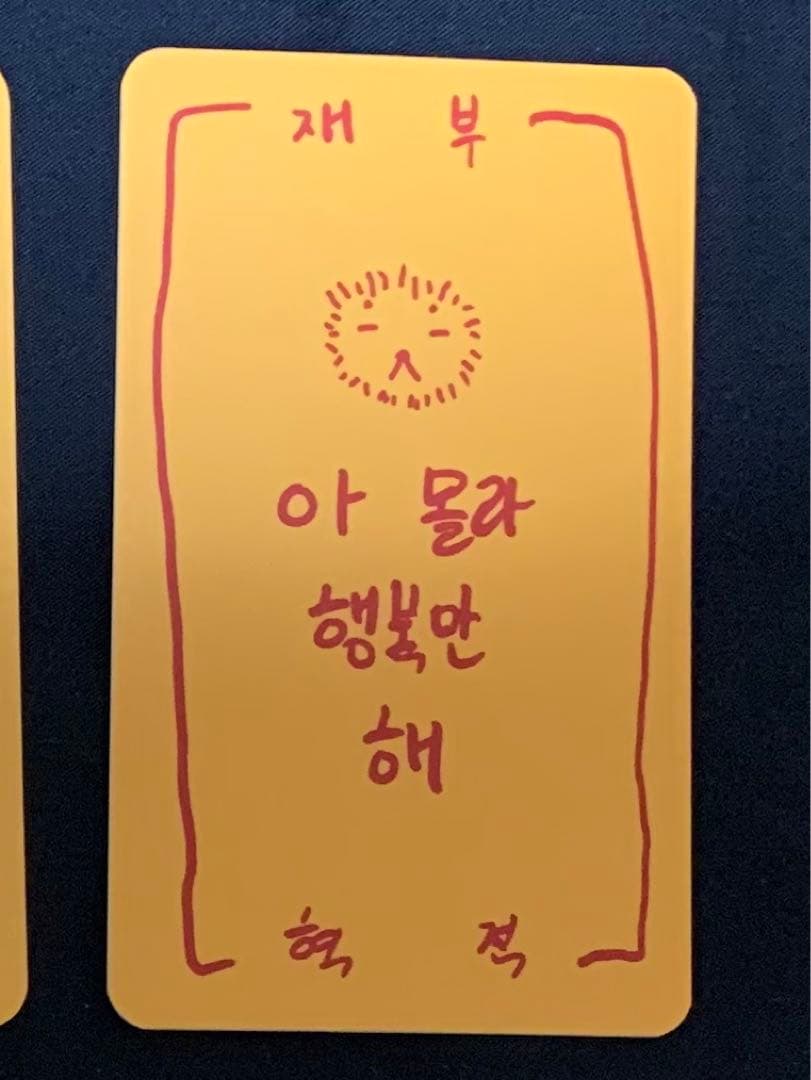 재 부
아 몰라
행복만
해
혁 적